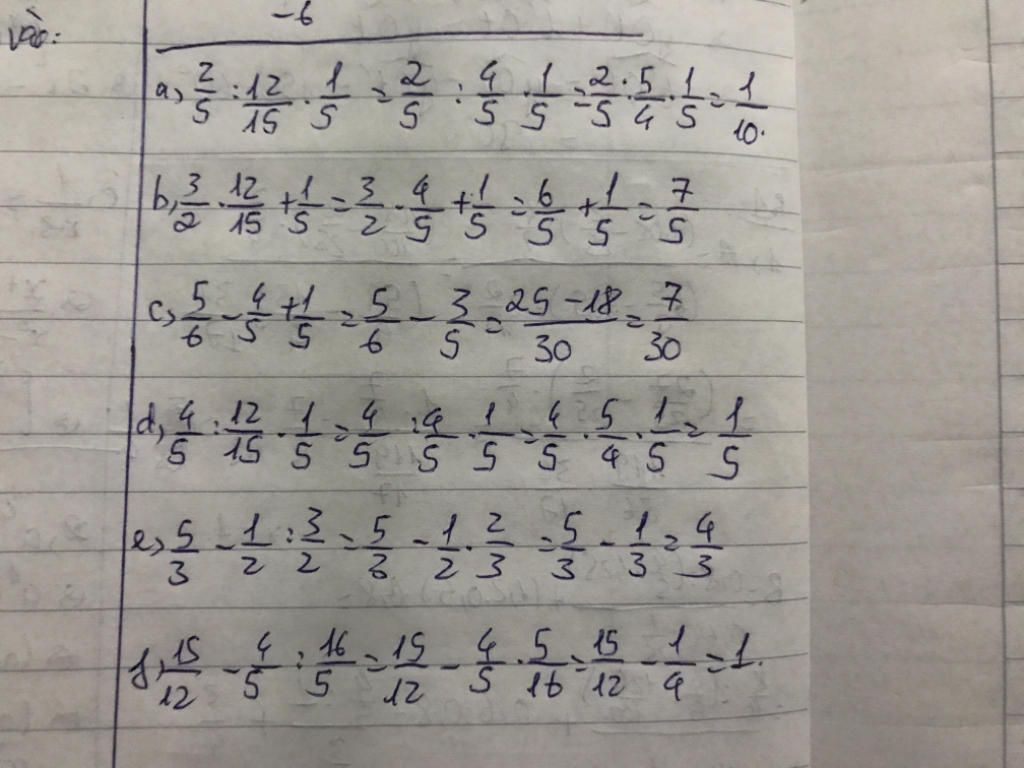 vào:
-6
a, 2/5 : 12/15 . 1/5 = 2/5 : 4/5 . 1/5 = 2/5 . 5/4 . 1/5 = 1/10.
b, 3/2 . 12/15 + 1/5 = 3/2 . 4/5 + 1/5 = 6/5 + 1/5 = 7/5
c, 5/6 - 4/5 + 1/5 = 5/6 - 3/5 = 25-18/30 = 7/30
d, 4/5 : 12/15 . 1/5 = 4/5 : 4/5 . 1/5 = 4/5 . 5/4 . 1/5 = 1/5
e, 5/3 - 1/2 : 3/2 = 5/3 - 1/2 . 2/3 = 5/3 - 1/3 = 4/3
f, 15/12 - 4/5 : 16/5 = 15/12 - 4/5 . 5/16 = 15/12 - 1/4 = 1.